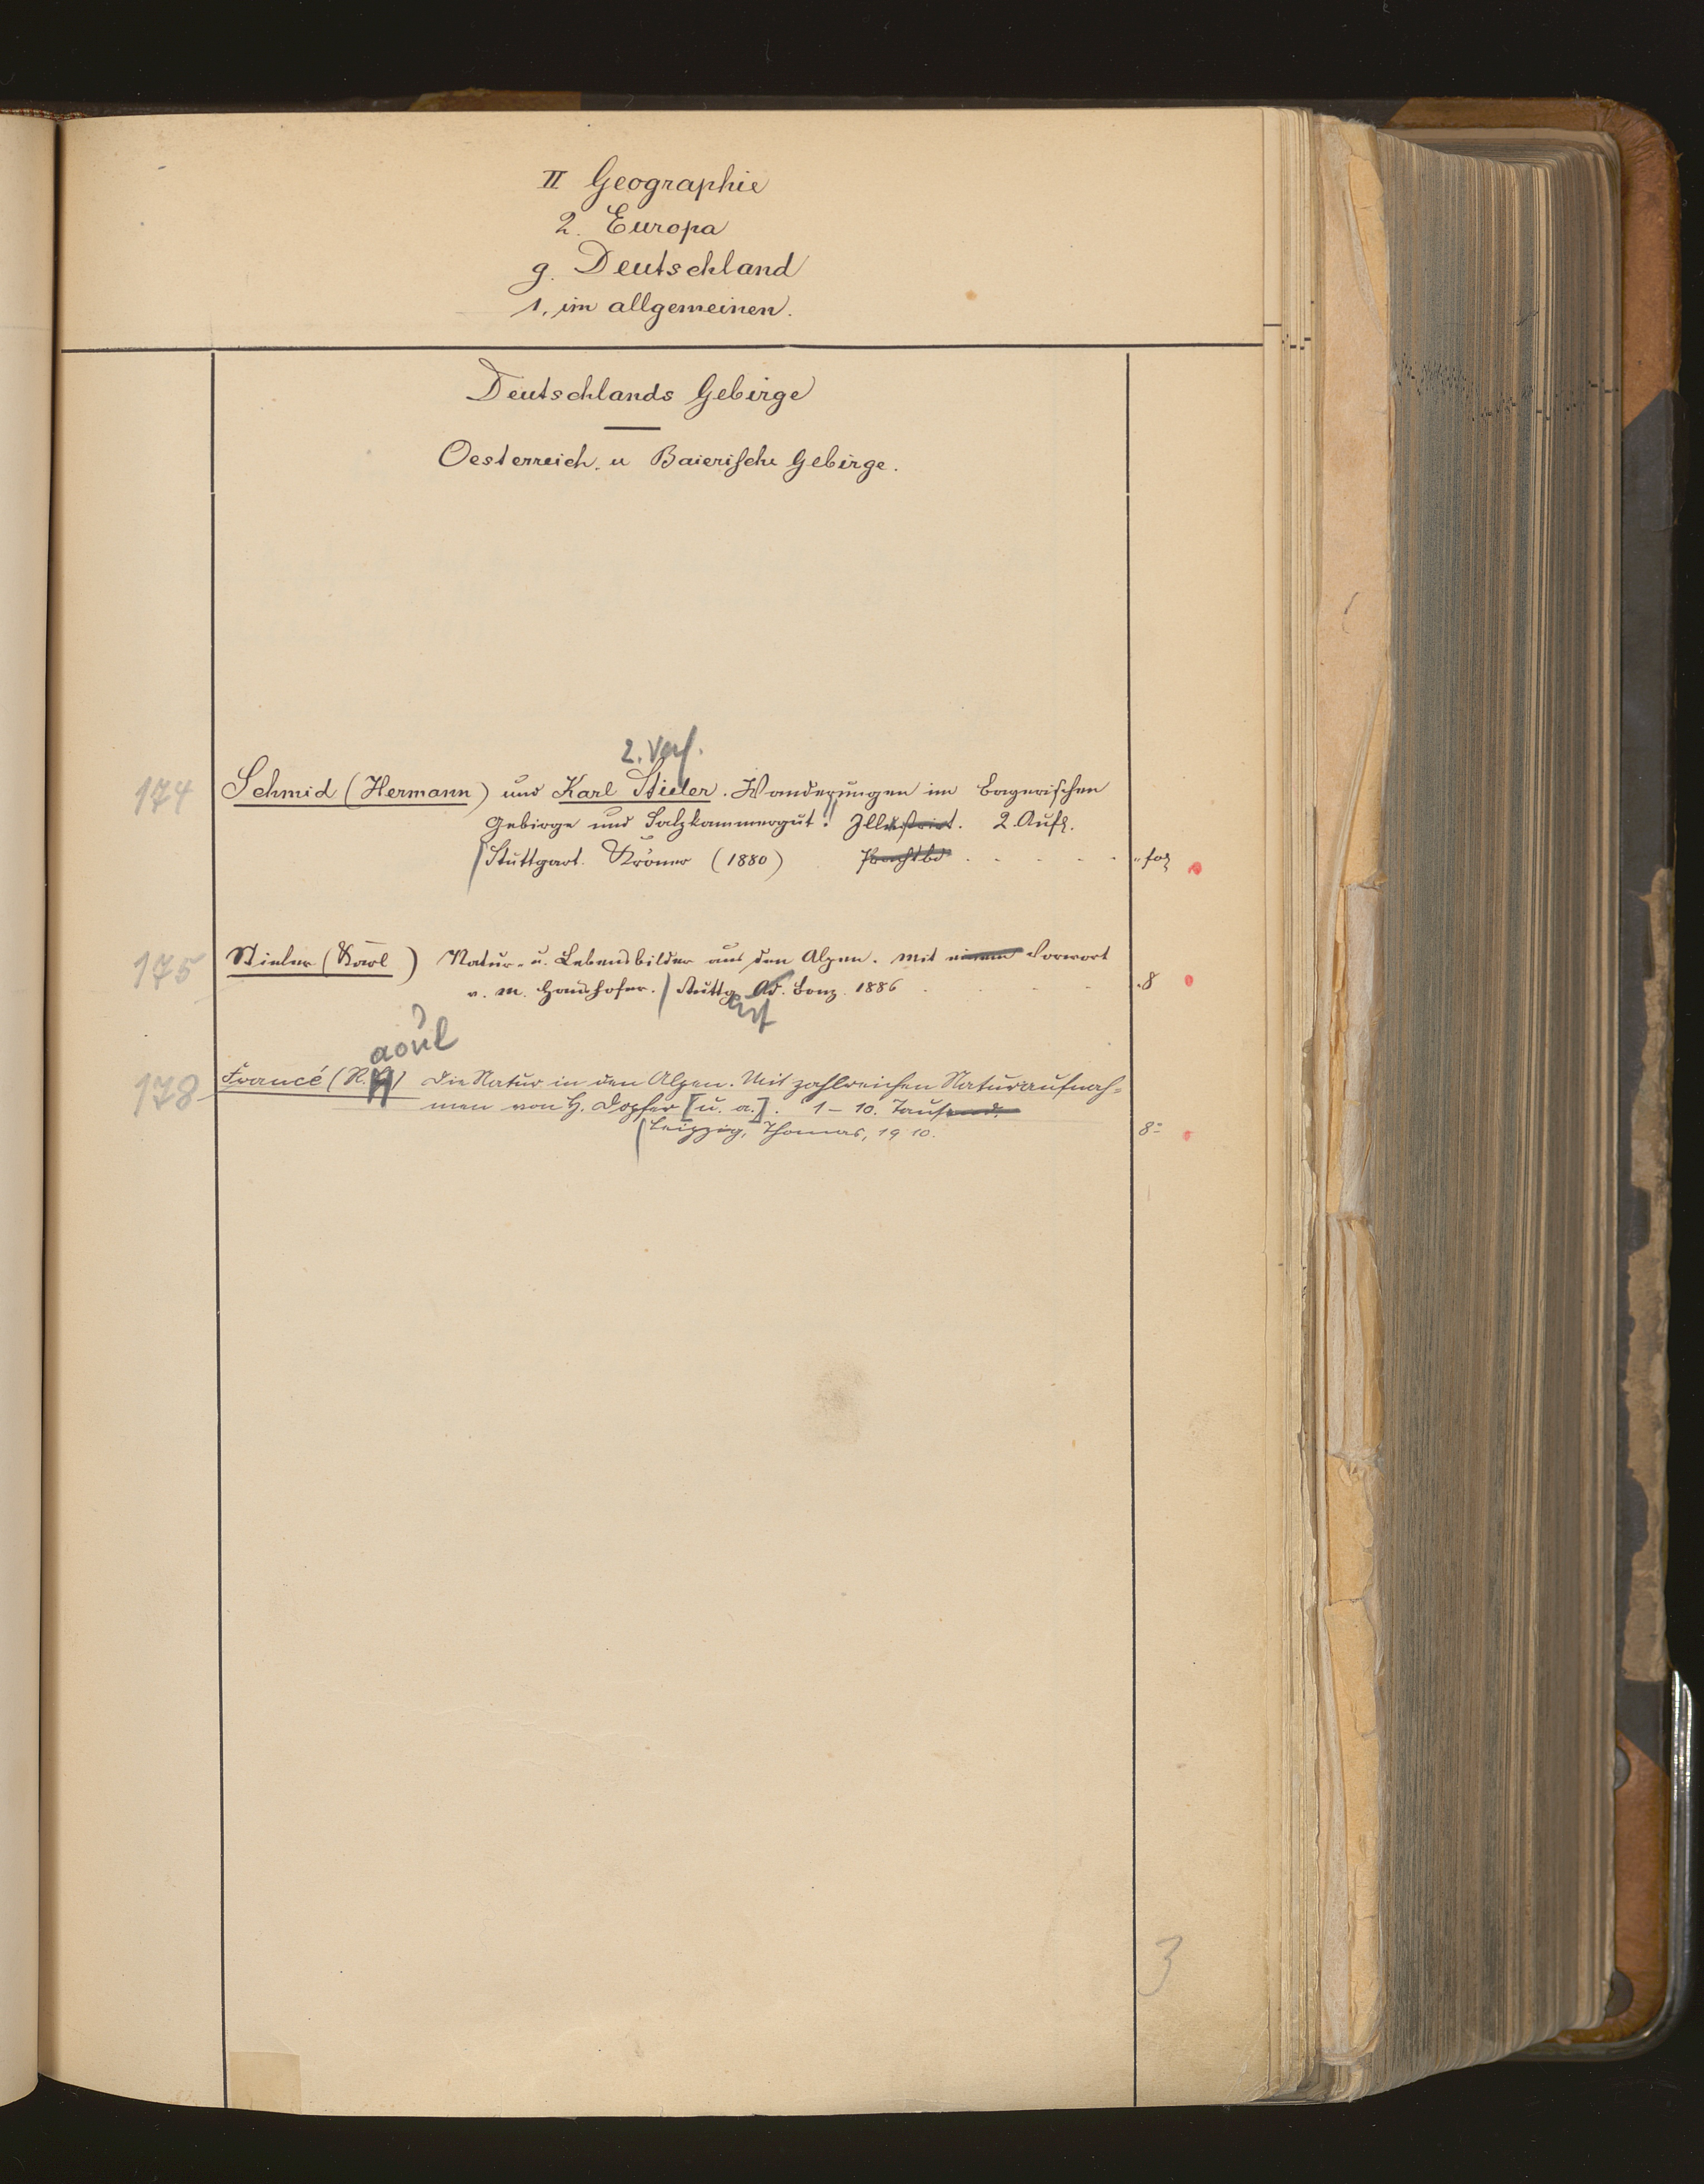 II Geographie
2. Europa
g. Deutschland
1, im allgemeinen.
Deutschlands Gebirge
Oesterreich. u Baierische Gebirge.
2. Verf.
174 Schmid (Hermann) und Karl Stieler. Wanderungen im bayerischen
Gebirge und Salzkammergut. Illustrirt. 2. Aufl.
Stuttgart. Kröner (1880) Prachtbd . . . . . " fol
175 Stieler (Karl) Natur- u. Lebensbilder aus den Alpen. Mit einem Vorwort
v. M. Haushofer. / Stuttg. Ad. Bonz. 1886 . . . . 8
aoul
178 Francé (R. H) Die Natur in den Alpen. Mit zahlreichen Naturaufnah=
men von H. Dopfer [u. a.]. 1-10. Tausend.
Leipzig, Thomas, 1910. 8°
3